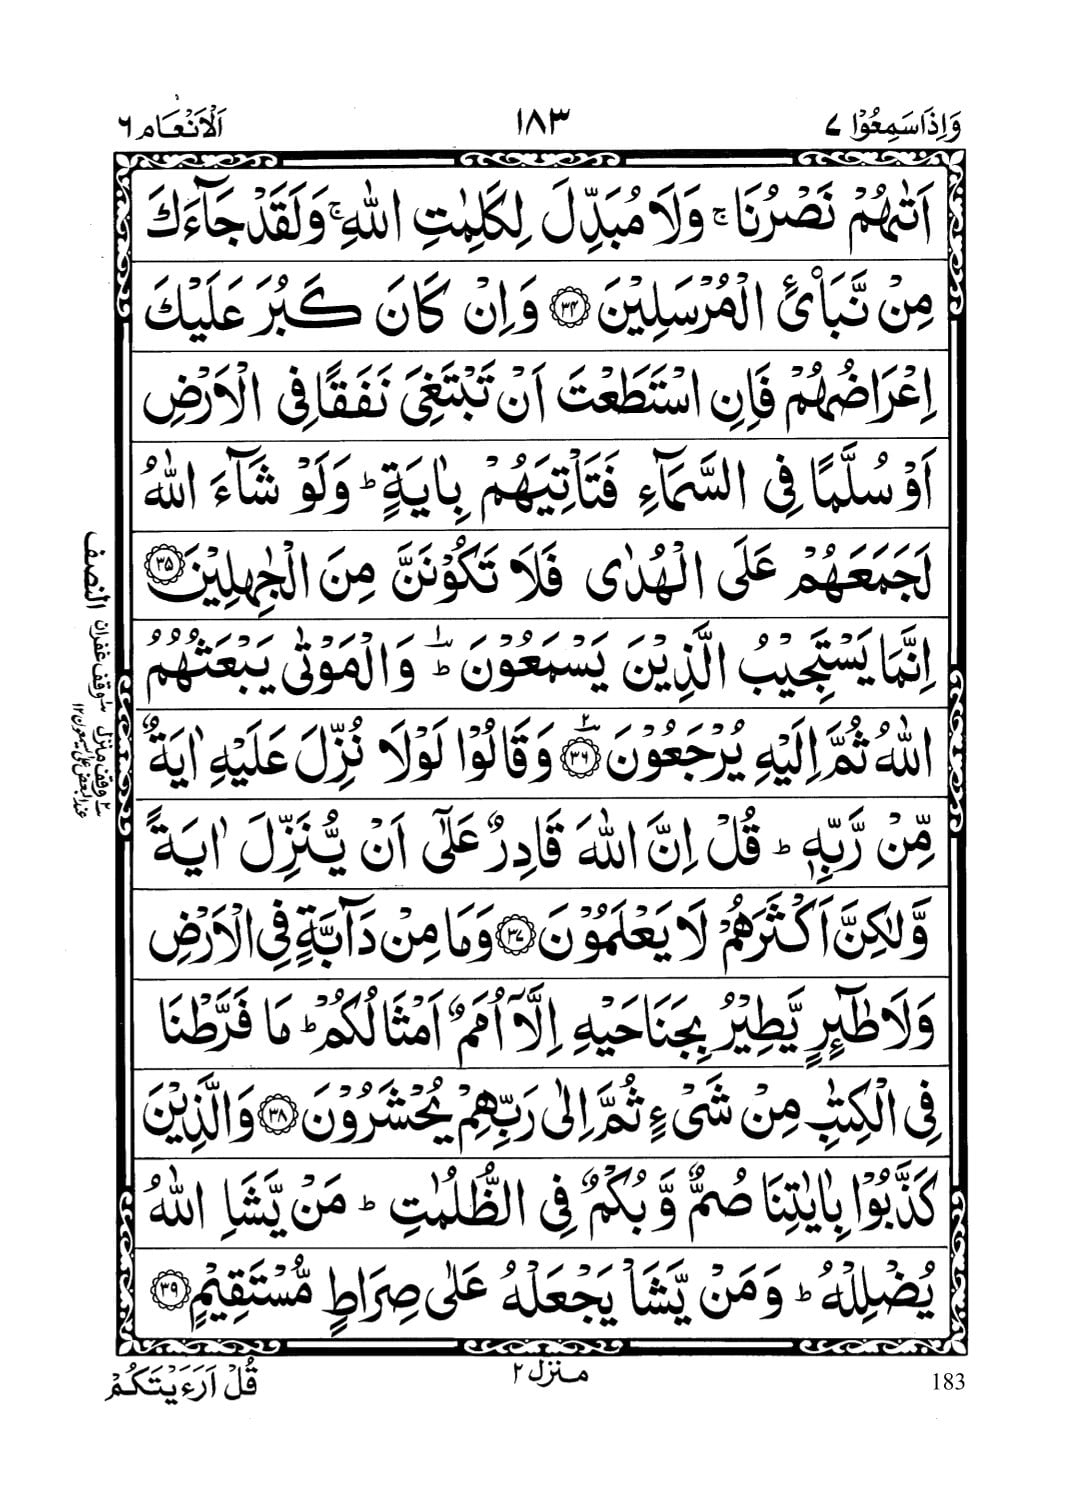 وَاِذَا سَمِعُوۡا ۷
۱۸۳
اَلۡاَنۡعَام ۶
اَتٰىهُمۡ نَصۡرُنَا ۚ وَلَا مُبَدِّلَ لِكَلِمٰتِ اللّٰهِ ۚ وَلَقَدۡ جَآءَكَ
مِنۡ نَّبَاِىۡٔ الۡمُرۡسَلِيۡنَ ﴿۳۴﴾ وَاِنۡ كَانَ كَبُرَ عَلَيۡكَ
اِعۡرَاضُهُمۡ فَاِنِ اسۡتَطَعۡتَ اَنۡ تَبۡتَغِىَ نَفَقًا فِى الۡاَرۡضِ
اَوۡ سُلَّمًا فِى السَّمَآءِ فَتَاۡتِيَهُمۡ بِاٰيَةٍ ؕ وَلَوۡ شَآءَ اللّٰهُ
لَجَمَعَهُمۡ عَلَى الۡهُدٰى فَلَا تَكُوۡنَنَّ مِنَ الۡجٰهِلِيۡنَ ﴿۳۵﴾
اِنَّمَا يَسۡتَجِيۡبُ الَّذِيۡنَ يَسۡمَعُوۡنَ ؕ وَالۡمَوۡتٰى يَبۡعَثُهُمُ
اللّٰهُ ثُمَّ اِلَيۡهِ يُرۡجَعُوۡنَ ﴿۳۶﴾ وَقَالُوۡا لَوۡلَا نُزِّلَ عَلَيۡهِ اٰيَةٌ
مِّنۡ رَّبِّهٖ ؕ قُلۡ اِنَّ اللّٰهَ قَادِرٌ عَلٰٓى اَنۡ يُّنَزِّلَ اٰيَةً
وَّلٰكِنَّ اَكۡثَرَهُمۡ لَا يَعۡلَمُوۡنَ ﴿۳۷﴾ وَمَا مِنۡ دَآبَّةٍ فِى الۡاَرۡضِ
وَلَا طٰٓئِرٍ يَّطِيۡرُ بِجَنَاحَيۡهِ اِلَّاۤ اُمَمٌ اَمۡثَالُكُمۡ ؕ مَا فَرَّطۡنَا
فِى الۡكِتٰبِ مِنۡ شَىۡءٍ ثُمَّ اِلٰى رَبِّهِمۡ يُحۡشَرُوۡنَ ﴿۳۸﴾ وَالَّذِيۡنَ
كَذَّبُوۡا بِاٰيٰتِنَا صُمٌّ وَّبُكۡمٌ فِى الظُّلُمٰتِ ؕ مَنۡ يَّشَاِ اللّٰهُ
يُضۡلِلۡهُ ؕ وَمَنۡ يَّشَاۡ يَجۡعَلۡهُ عَلٰى صِرَاطٍ مُّسۡتَقِيۡمٍ ﴿۳۹﴾
النصف
وقف غفران
وقف منزل
183
منزل ۲
قُلۡ اَرَءَيۡتَكُمۡ